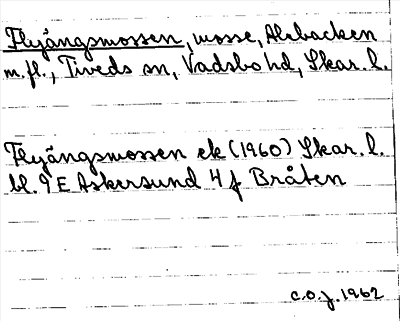 Flyängsmossen, mosse, Alebacken
m.fl., Tiveds sn, Vadsbo hd, Skar. l.
Flyängsmossen ek (1960) Skar. l.
bl. 9 E Askersund 4 f Bråten
C.O.J. 1962